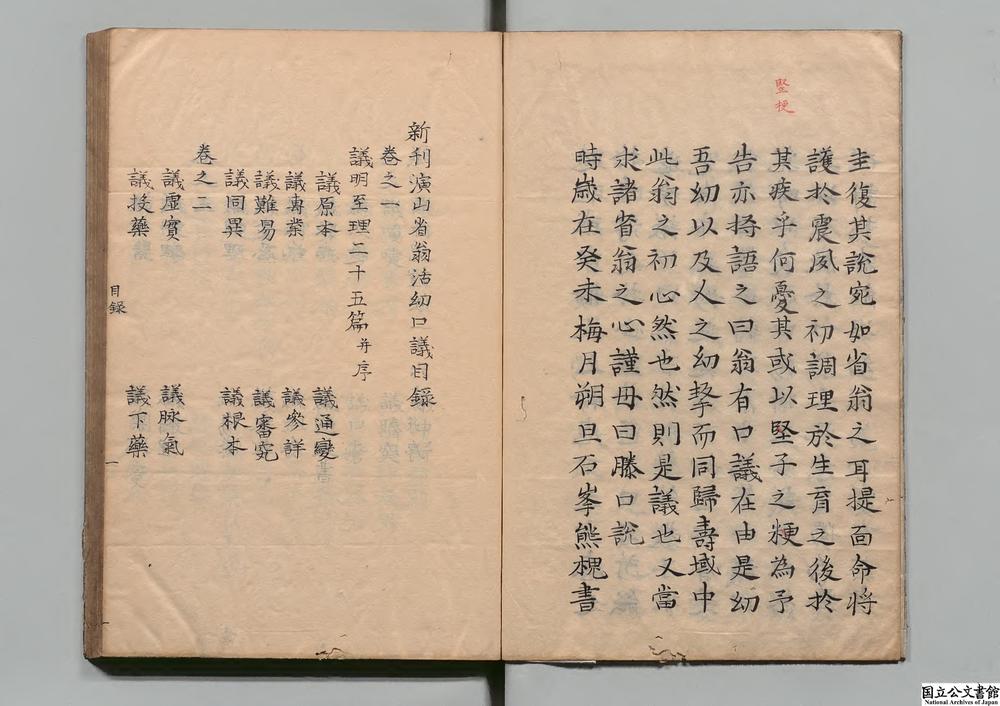 竪梗
圭復其說宛如省翁之耳提面命将
護於震夙之初調理於生育之後於
其疾乎何憂其或以堅子之粳為予
告亦将語之曰翁有口議在由是幼
吾幼以及人之幼挈而同歸壽域中
此翁之初心然也然則是議也又當
求諸省翁之心謹毋曰滕口說
時歳在癸未梅月朔旦石峯熊槐書
新刊演山省翁活幼口議目錄
卷之一
議明至理二十五篇并序
議原本 議通變
議專業 議參詳
議難易 議審究
議同異 議根本
卷之二
議虛實 議脉氣
議投藥 議下藥
目録
一
国立公文書館
National Archives of Japan